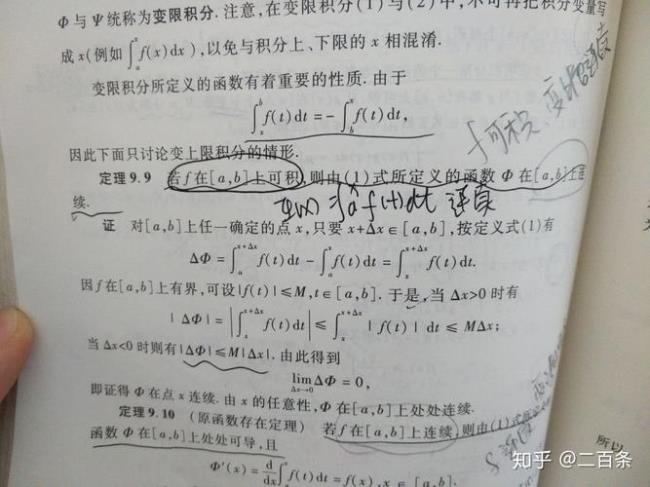 Φ与Ψ统称为变限积分.注意,在变限积分(1)与(2)中,不可再把积分变量写
成x(例如∫ₐˣf(x)dx),以免与积分上、下限的x相混淆.
变限积分所定义的函数有着重要的性质.由于
∫ₓᵇf(t)dt=-∫ᵇˣf(t)dt,
因此下面只讨论变上限积分的情形.
f可积 变
定理9.9 若f在[a,b]上可积,则由(1)式所定义的函数Φ在[a,b]上连
续.
f(t)dt 连续
证 对[a,b]上任一确定的点x,只要x+Δx∈[a,b],按定义式(1)有
ΔΦ=∫ₐˣ⁺Δˣf(t)dt-∫ₐˣf(t)dt=∫ₓˣ⁺Δˣf(t)dt.
因f在[a,b]上有界,可设|f(t)|≤M,t∈[a,b].于是,当Δx>0时有
|ΔΦ|=|∫ₓˣ⁺Δˣf(t)dt|≤∫ₓˣ⁺Δˣ|f(t)|dt≤MΔx;
当Δx<0时则有|ΔΦ|≤M|Δx|.由此得到
lim Δx→0 ΔΦ=0,
即证得Φ在点x连续.由x的任意性,Φ在[a,b]上处处连续.
定理9.10 (原函数存在定理) 若f在[a,b]上连续,则由(1)式所定
函数Φ在[a,b]上处处可导,且
Φ′(x)=d/dx∫ₐˣf(t)dt=f(x),x∈[a,b].
所以
知乎 @二百条